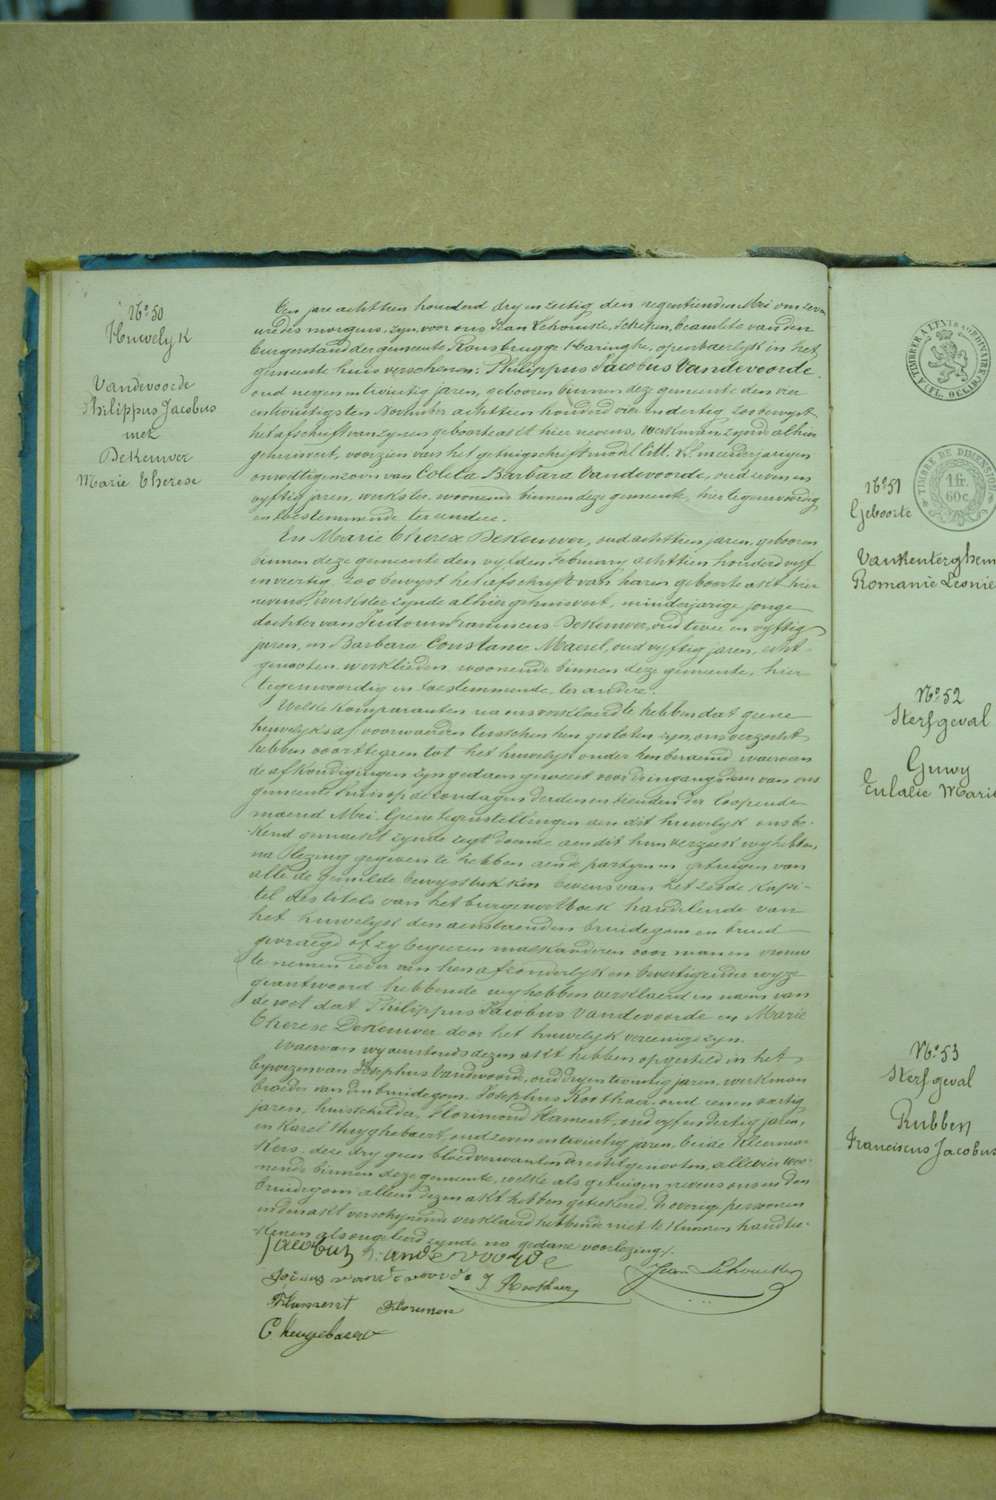 N.º 50
Huwelyk
Vandevoorde
Philippus Jacobus
met
Dekeuwer
Marie Therese
Een jare achttien honderd dry en zestig, den negentienden Mei om zeven
uren des morgens, zyn, voor ons Jean Lehoucke, Schepen, beamtte van den
burgerstand der gemeente Rousbrugge Haringhe, openbaerlyk in het
gemeente huis verschenen: Philippus Jacobus Vandevoorde
oud negen en twintig jaren, geboren binnen deze gemeente den vier
entwintigsten November achttien honderd vier en dertig zoo bewyst
het afschrift van zynen geboorte akt hier nevens, werkman zynde alhier
gehuisvest, voorzien van het getuigschrift model Litt. K. meerderjarigen
onwettigen zoon van Coleta Barbara Vandevoorde, oud zeven en
vyftig jaren, werkster, woonende binnen deze gemeente, hier tegenwoordig
en toestemmende ter andere.
En Marie Therese Dekeuwer, oud achttien jaren, geboren
binnen deze gemeente den vyfden February achttien honderd vyf
en veertig, zoo bewyst het afschrift van haren geboorte akt hier
nevens, werkster zynde alhier gehuisvest, minderjarige jonge
dochter van Isidorus Franciscus Dekeuwer, oud twee en vyftig
jaren, en Barbara Constance Maerel, oud vyftig jaren, echt-
genooten, werklieden, woonende binnen deze gemeente, hier
tegenwoordig en toestemmende, ter andere.
Welke komparanten na ons verklaerd te hebben dat geene
huwelyksaf voorwaerden tusschen hen gesloten zyn, ons verzocht
hebben voorttegaen tot het huwelyk onder hen beraemd, waervan
de afkondigingen zyn gedaen geweest voor de ingangsdeur van ons
gemeente huis op de zondagen derden en tienden der loopende
maend Mei. Geene tegenstellingen aen dit huwelyk ons be-
kend gemaekt zynde regt doende aen dit hun verzoek wy hebben,
na lezing gegeven te hebben aen de partyen en getuigen van
alle de gemelde bewysstukken benevens van het zesde kapi-
tel des titels van het burger wetboek handelende van
het huwelyk den aenstaenden bruidegom en bruid
gevraegd of zy begeeren malkanderen voor man en vrouw
te nemen ieder van hen afzonderlyk en bevestigender wyze
geantwoord hebbende wy hebben verklaerd in naem van
de wet dat Philippus Jacobus Vandevoorde en Marie
Therese Dekeuwer door het huwelyk vereenigd zyn.
Waervan wy aenstonds dezen akt hebben opgesteld in het
bywezen van Josephus Vandevoorde, oud dry en twintig jaren, werkman
broeder van den bruidegom, Josephus Roothaer, oud een en veertig
jaren, huisschilder, Florimond Flament, oud vyf en dertig jaren,
en Karel Huyghebaert, oud zeven en twintig jaren, beide kleerma-
kers, deze dry geen bloedverwanten der echtgenooten, alle vier woo-
nende binnen deze gemeente, welke als getuigen nevens ons en den
bruidegom alleen dezen akt hebben geteekend. De overige persoonen
in dien akt verschynende verklaerd hebbende niet te kunnen handtee-
kenen als ongeleerd zynde na gedane voorlezing.
Jacobus Vande voorde
Josephus vande voorde J Roothaer Jean Lehoucke
Flament Florimon
C huygebaert
TIMBRE DE DIMENSION
1 fr.
60 c.
N.º 51
Geboorte
Vankenterghem
Romanie Leonie
N.º 52
Sterfgeval
Guwy
Eulalie Marie
N.º 53
Sterfgeval
Rubben
Franciscus Jacobus